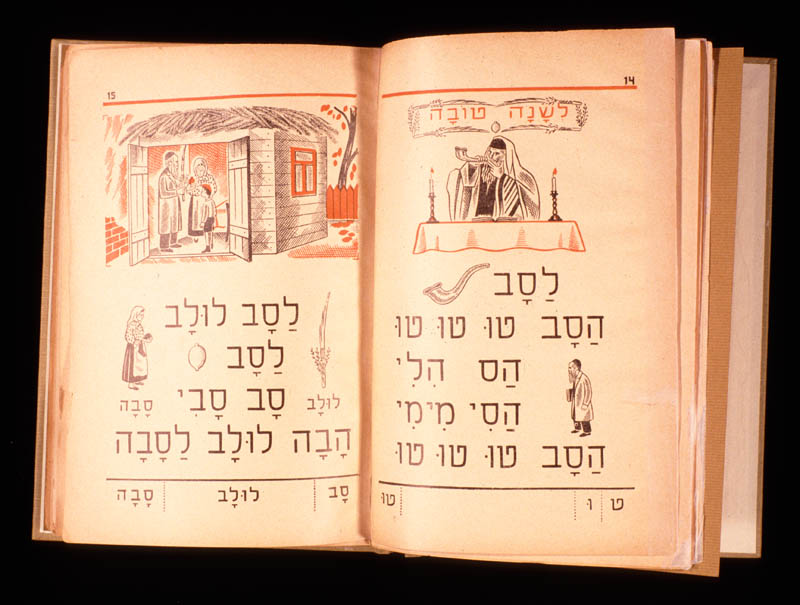 14
לְשָׁנָה טוֹבָה
לַסָּב
הַסָּב טוּ טוּ טוּ
הַס הִלִי
הַסִי מִימִי
הַסָּב טוּ טוּ טוּ
ט ו טוּ
15
לַסָּב לוּלָב
לַסָּב
סָב סָבִי
לוּלָב סָבָה
הָבָה לוּלָב לַסָּבָה
סָב לוּלָב סָבָה